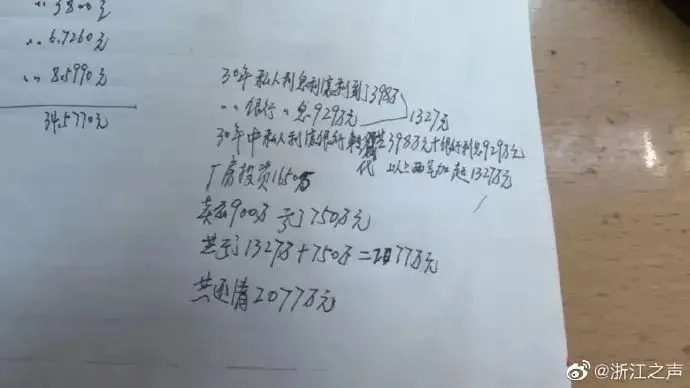 3800元
〃 6.7260元
〃 8.5990元
34.5770元
30年私人利息利滚利到了398万
〃〃 银行 〃 息929万元
1327万
30年中私人利滚银行 398万元+银行利息929万元
代 以上两笔加起1327万元
厂房投资1650万
卖出900万亏了750万元
共亏了1327万+750万=2077万元
共还清2077万元
@浙江之声